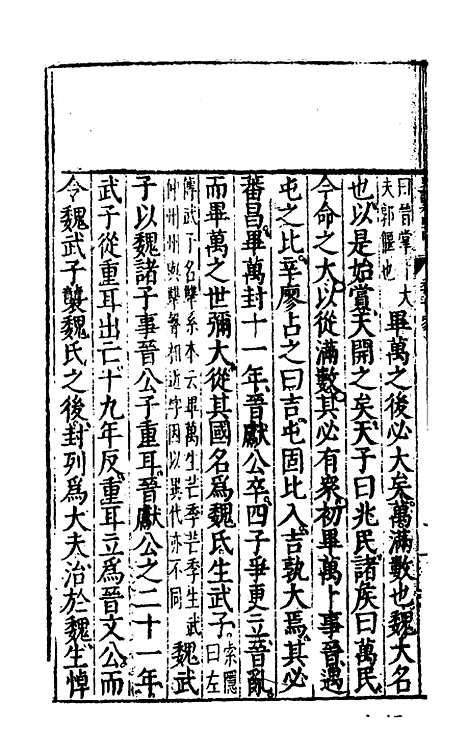 曰昔掌卜大
夫郭偃也
畢萬之後必大矣萬滿數也魏大名
也以是始賞天開之矣天子曰兆民諸侯曰萬民
今命之大以從滿數其必有衆初畢萬卜事晉遇
屯之比辛廖占之曰吉屯固比入吉孰大焉其必
蕃昌畢萬封十一年晉獻公卒四子爭更立晉亂
而畢萬之世彌大從其國名爲魏氏生武子
索隱
曰左
傳武子名犨系本云畢萬生芒季芒季生武
仲州州與犨聲相近字因以異代亦不同
魏武
子以魏諸子事晉公子重耳晉獻公之二十一年
武子從重耳出亡十九年反重耳立爲晉文公而
令魏武子襲魏氏之後封列爲大夫治於魏生悼